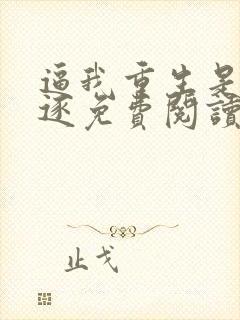 逼我重生是
逐免費閱讀
止戈